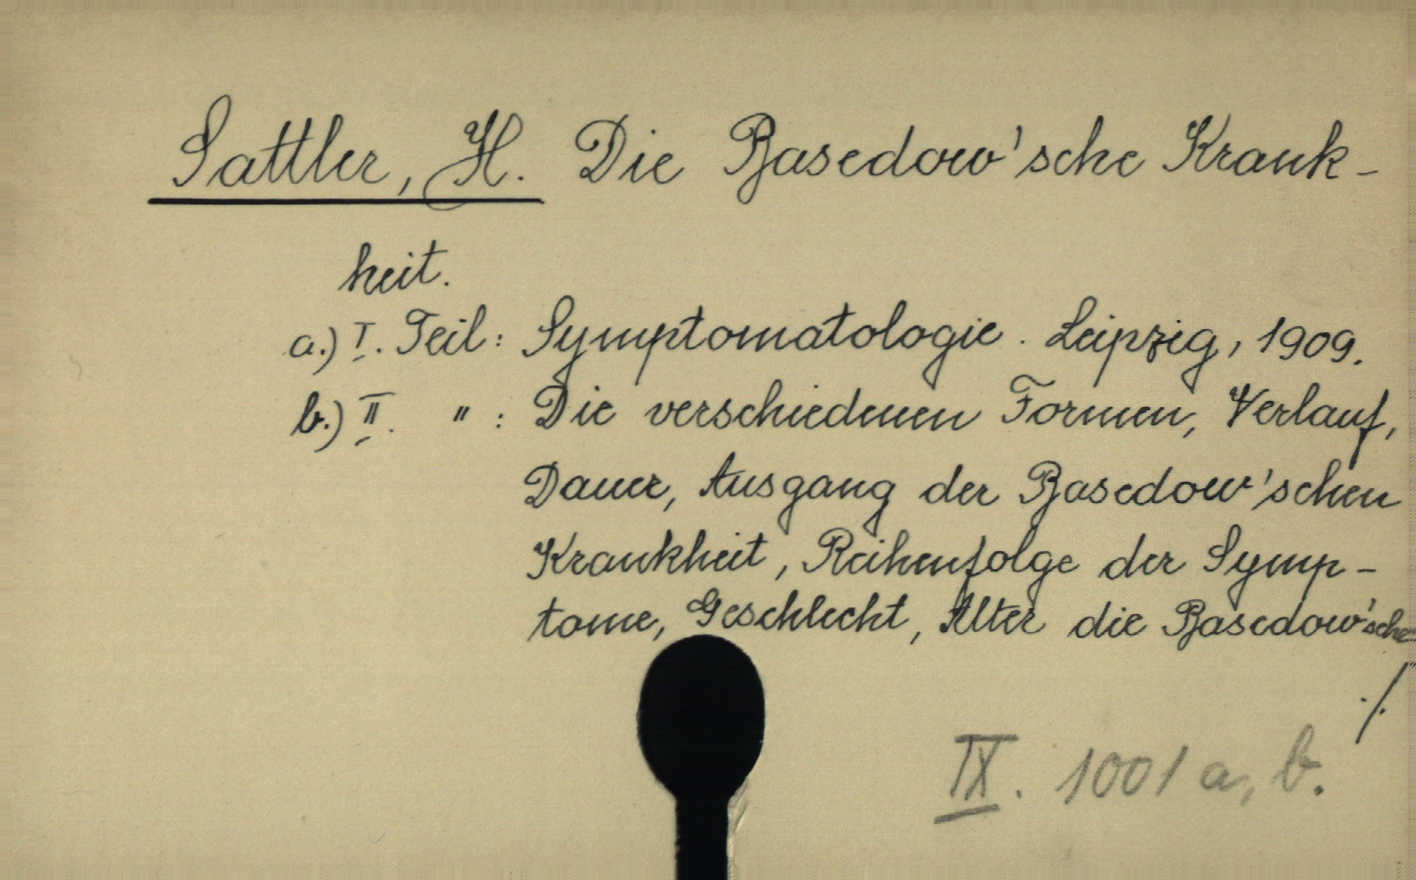 Sattler, H. Die Basedow'sche Krank-
heit.
a.) I. Teil: Symptomatologie. Leipzig, 1909.
b.) II. " : Die verschiedenen Formen, Verlauf,
Dauer, Ausgang der Basedow'schen
Krankheit, Reihenfolge der Symp-
tome, Geschlecht, Alter die Basedow'sche
./.
IX. 1001 a, b.